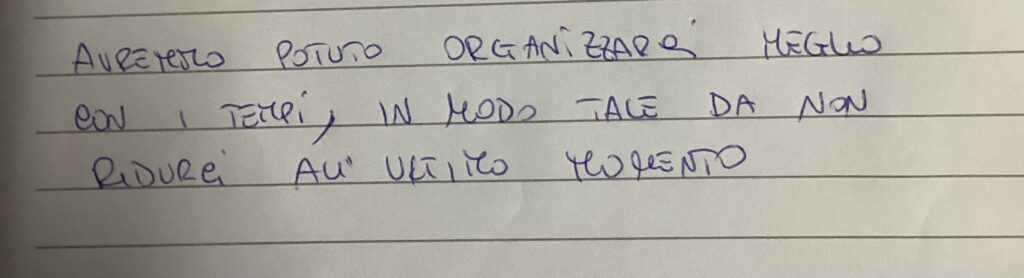 AVREMMO POTUTO ORGANIZZARCI MEGLIO
CON I TEMPI, IN MODO TALE DA NON
RIDURCI ALL'ULTIMO MOMENTO